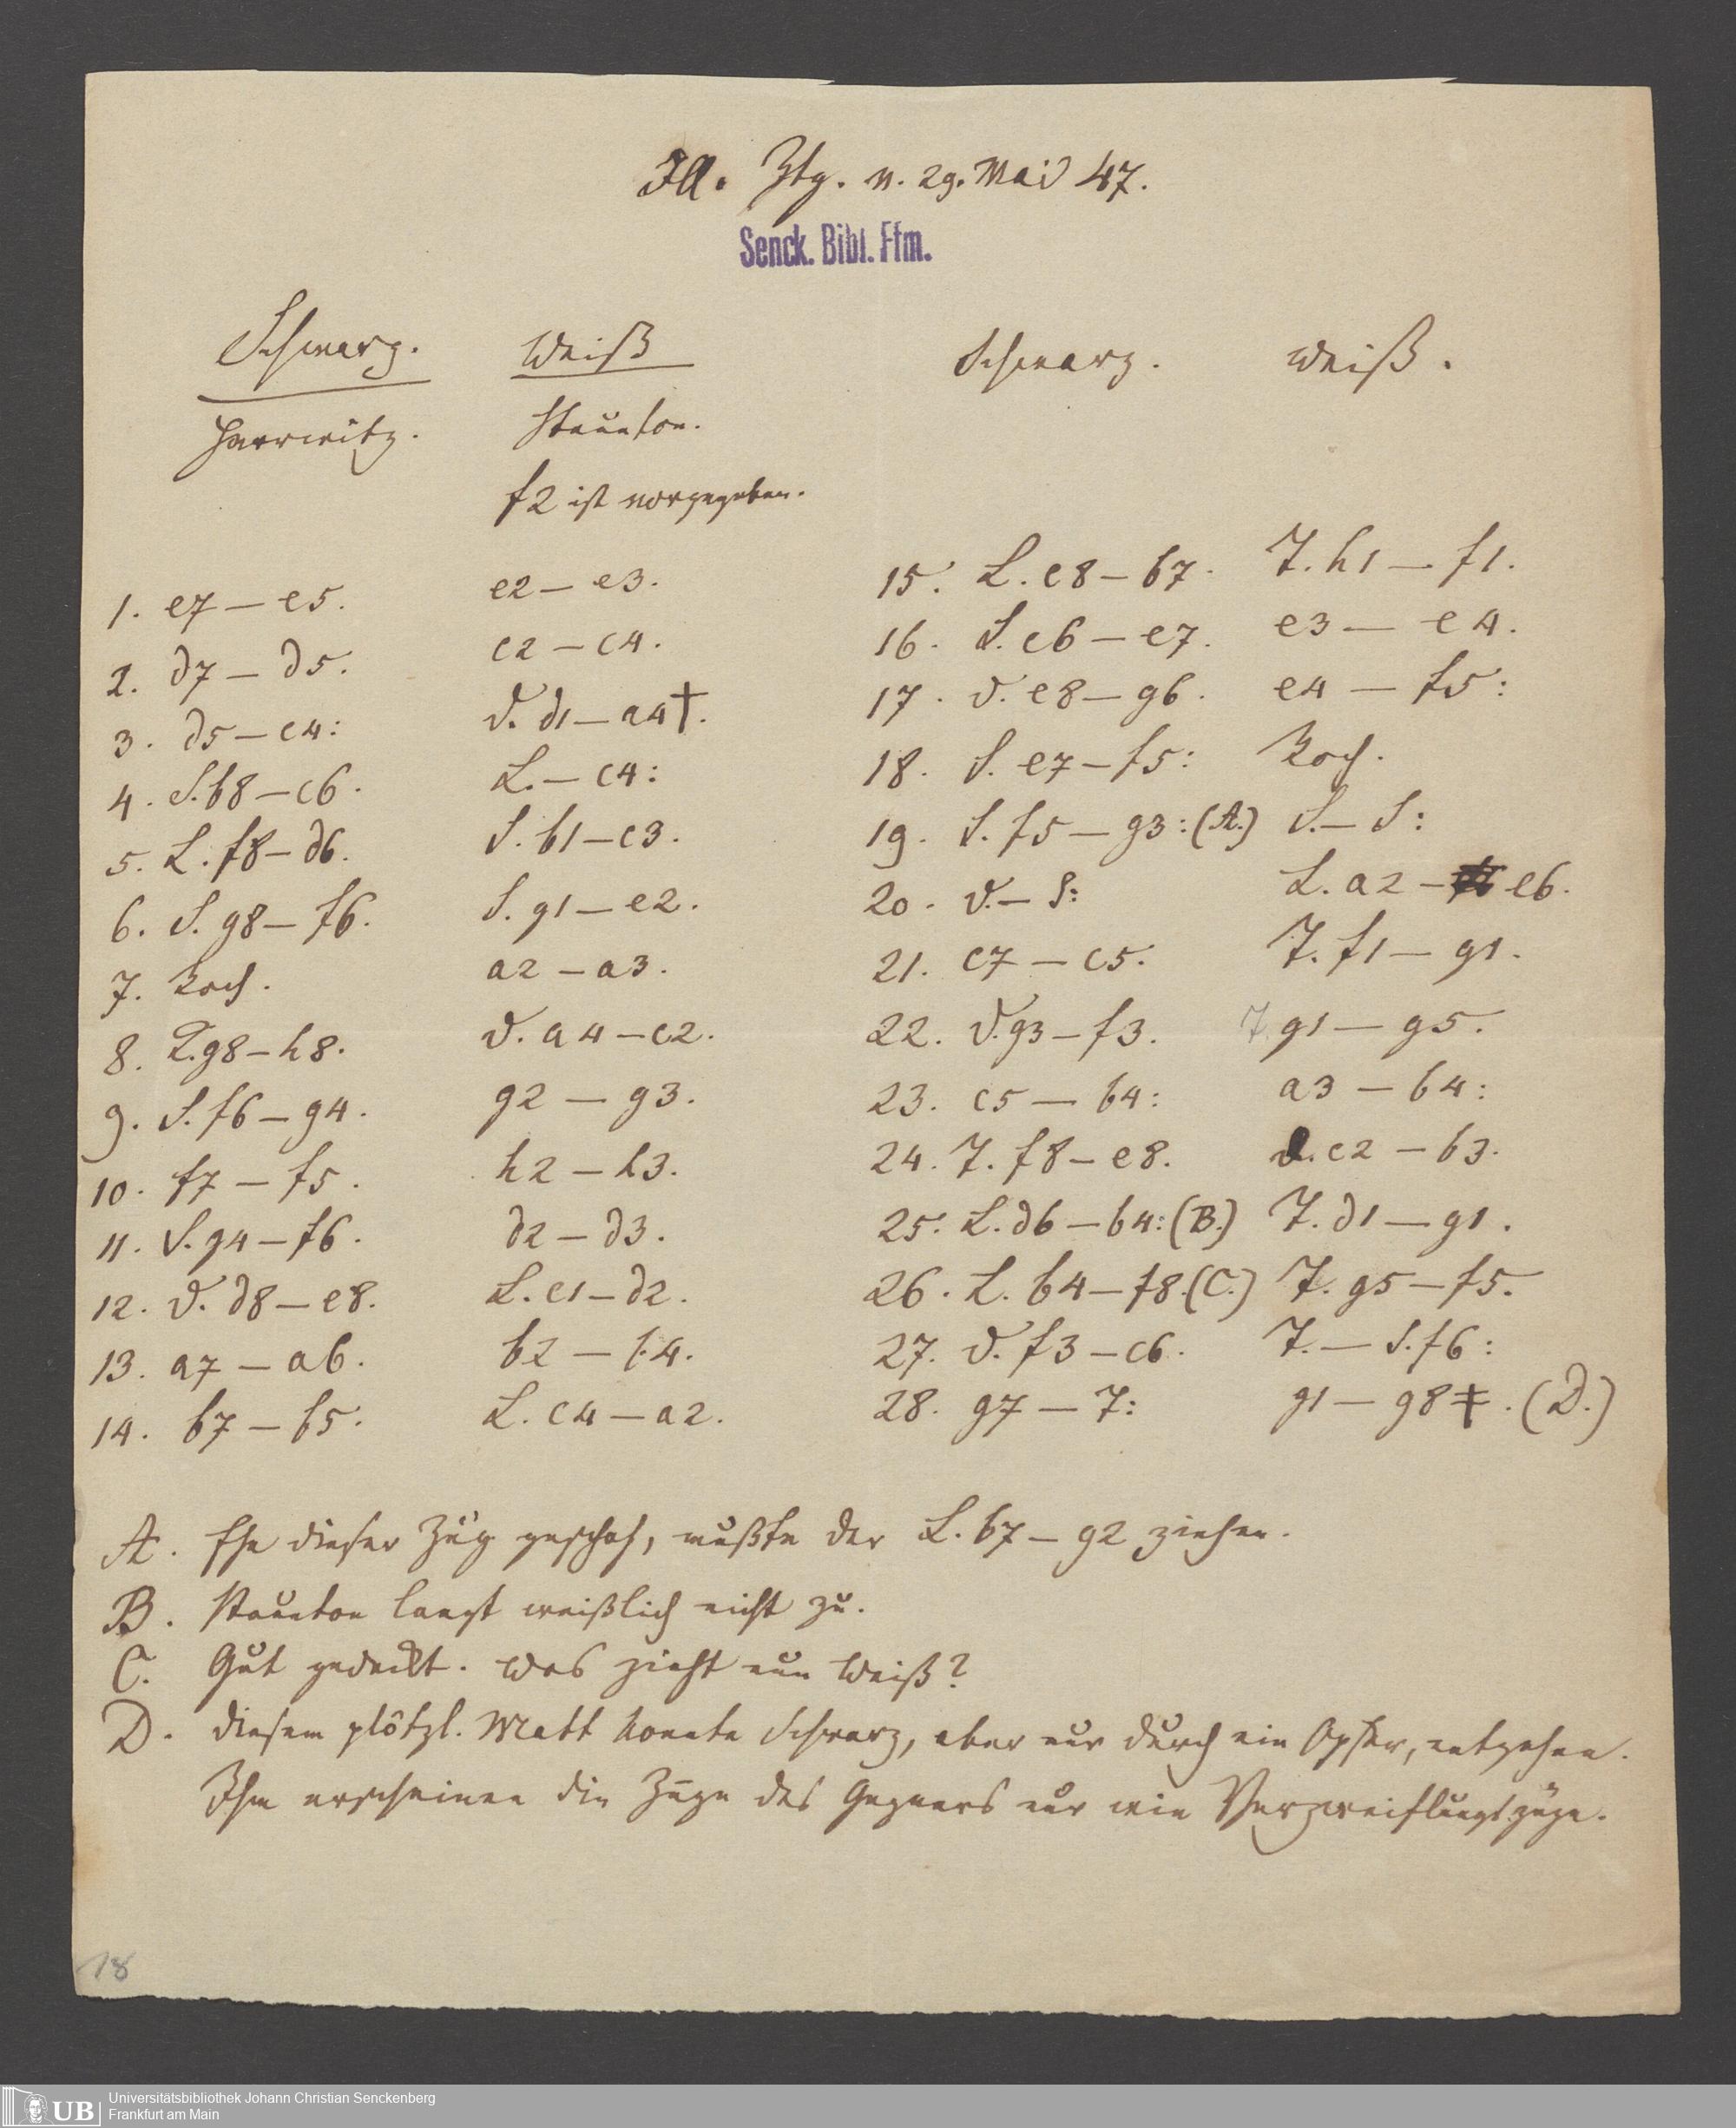 Ill. Ztg. v. 29. Mai 47.
Senck. Bibl. Ffm.
Schwarz. Weiß
Harrwitz. Staunton.
f2 ist vorgegeben.
1. e7 — e5. e2 — e3.
2. d7 — d5. c2 — c4.
3. d5 — c4: D. d1 — a4†.
4. S. b8 — c6. L. — c4:
5. L. f8 — d6. S. b1 — c3.
6. S. g8 — f6. S. g1 — e2.
7. Roch. a2 — a3.
8. K. g8 — h8. D. a4 — c2.
9. S. f6 — g4. g2 — g3.
10. f7 — f5. h2 — h3.
11. S. g4 — f6. d2 — d3.
12. D. d8 — e8. L. c1 — d2.
13. a7 — a6. b2 — b4.
14. b7 — b5. L. c4 — a2.
Schwarz. Weiß.
15. L. c8 — b7. T. h1 — f1.
16. S. c6 — e7. e3 — e4.
17. D. e8 — g6. e4 — f5:
18. S. e7 — f5: Roch.
19. S. f5 — g3: (A.) S. — S:
20. D. — S: L. a2 — e6.
21. c7 — c5. T. f1 — g1.
22. D. g3 — f3. T. g1 — g5.
23. c5 — b4: a3 — b4:
24. T. f8 — e8. D. c2 — b3.
25. L. d6 — b4: (B.) T. d1 — g1.
26. L. b4 — f8. (C.) T. g5 — f5.
27. D. f3 — c6. T. — S. f6:
28. g7 — T: g1 — g8‡. (D.)
A. Ehe dieser Zug geschah, mußte der L. b7 — g2 ziehen.
B. Staunton langt weißlich nicht zu.
C. Gut gedeckt. Was zieht nun Weiß?
D. Diesem plötzl. Matt konnte Schwarz, aber nur durch ein Opfer, entgehen.
Ihm erscheinen die Züge des Gegners nur wie Verzweiflungszüge.
18
UB
Universitätsbibliothek Johann Christian Senckenberg
Frankfurt am Main